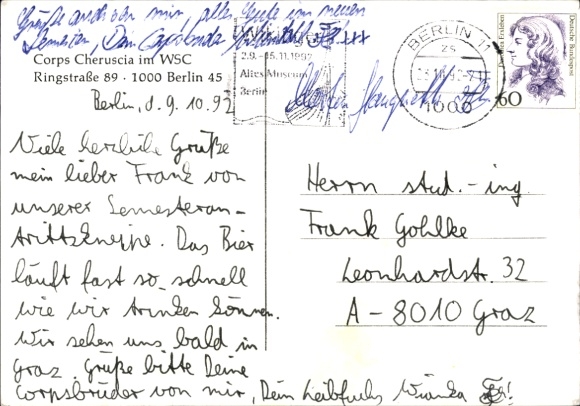 Grüße auch von mir, alles Gute im neuen
Semester, Dein
Corps Cheruscia im WSC
Ringstraße 89 · 1000 Berlin 45
Berlin, d. 9. 10. 92
Viele herzliche Grüße
mein lieber Frank von
unserer Semesteran-
trittskneipe. Das Bier
läuft fast so schnell
wie wir trinken können.
Wir sehen uns bald in
Graz. Grüße bitte Deine
Corpsbrüder von mir, Dein Leibfuchs
2.9.-15.11.1992
Altes Museum
Berlin
BERLIN 11
1000
Deutsche Bundespost
60
Herrn stud.-ing.
Frank Gohlke
Leonhardstr. 32
A-8010 Graz